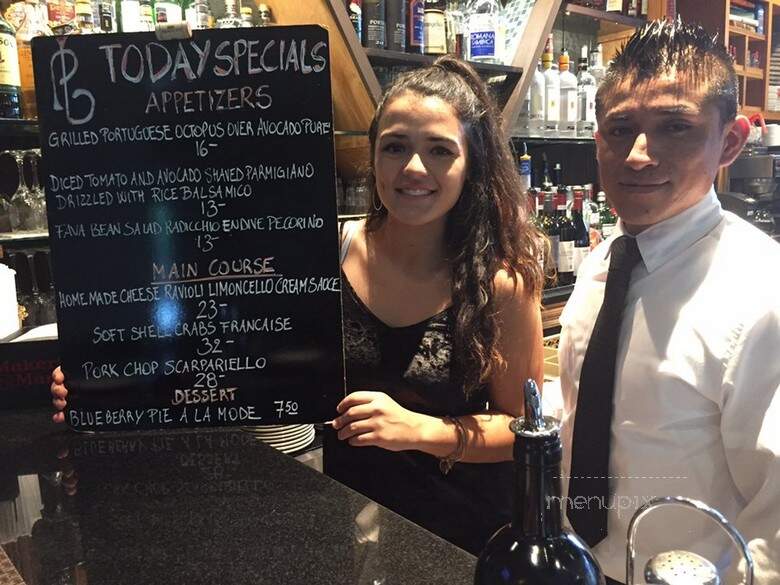 PL
TODAY SPECIALS
APPETIZERS
GRILLED PORTUGUESE OCTOPUS OVER AVOCADO PURE'
16-
DICED TOMATO AND AVOCADO SHAVED PARMIGIANO
DRIZZLED WITH RICE BALSAMICO
13-
FAVA BEAN SALAD RADICCHIO ENDIVE PECORINO
13-
MAIN COURSE
HOME MADE CHEESE RAVIOLI LIMONCELLO CREAM SAUCE
23-
SOFT SHELL CRABS FRANCAISE
32-
PORK CHOP SCARPARIELLO
28-
DESSERT
BLUEBERRY PIE A LA MODE 7.50
Maker's
Mark
menupix